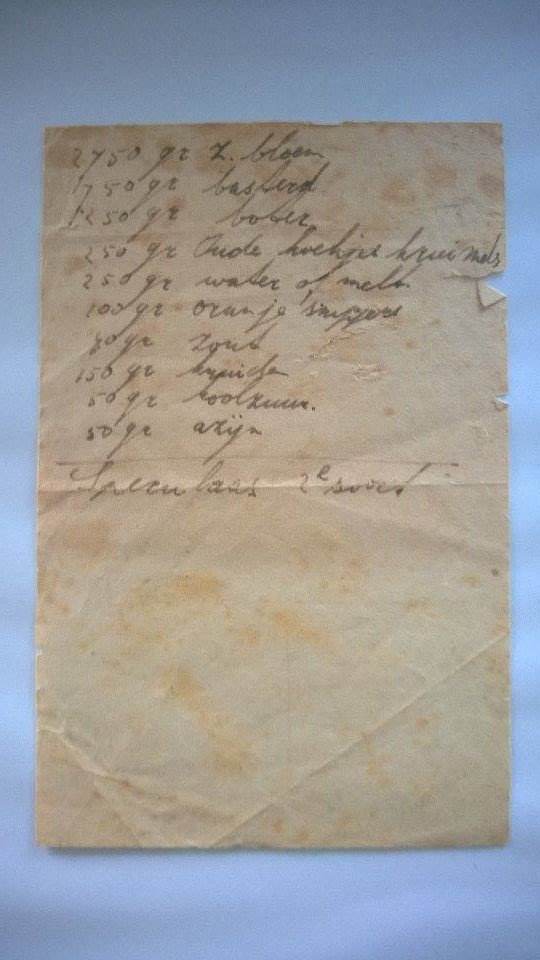 2750 gr Z. bloem
1750 gr basterd
1250 gr boter
250 gr Oude koekjes kruimels
250 gr water of melk
100 gr oranje snippers
80 gr Zout
150 gr kruiden
50 gr koolzuur.
50 gr azijn
Speculaas 2e soort